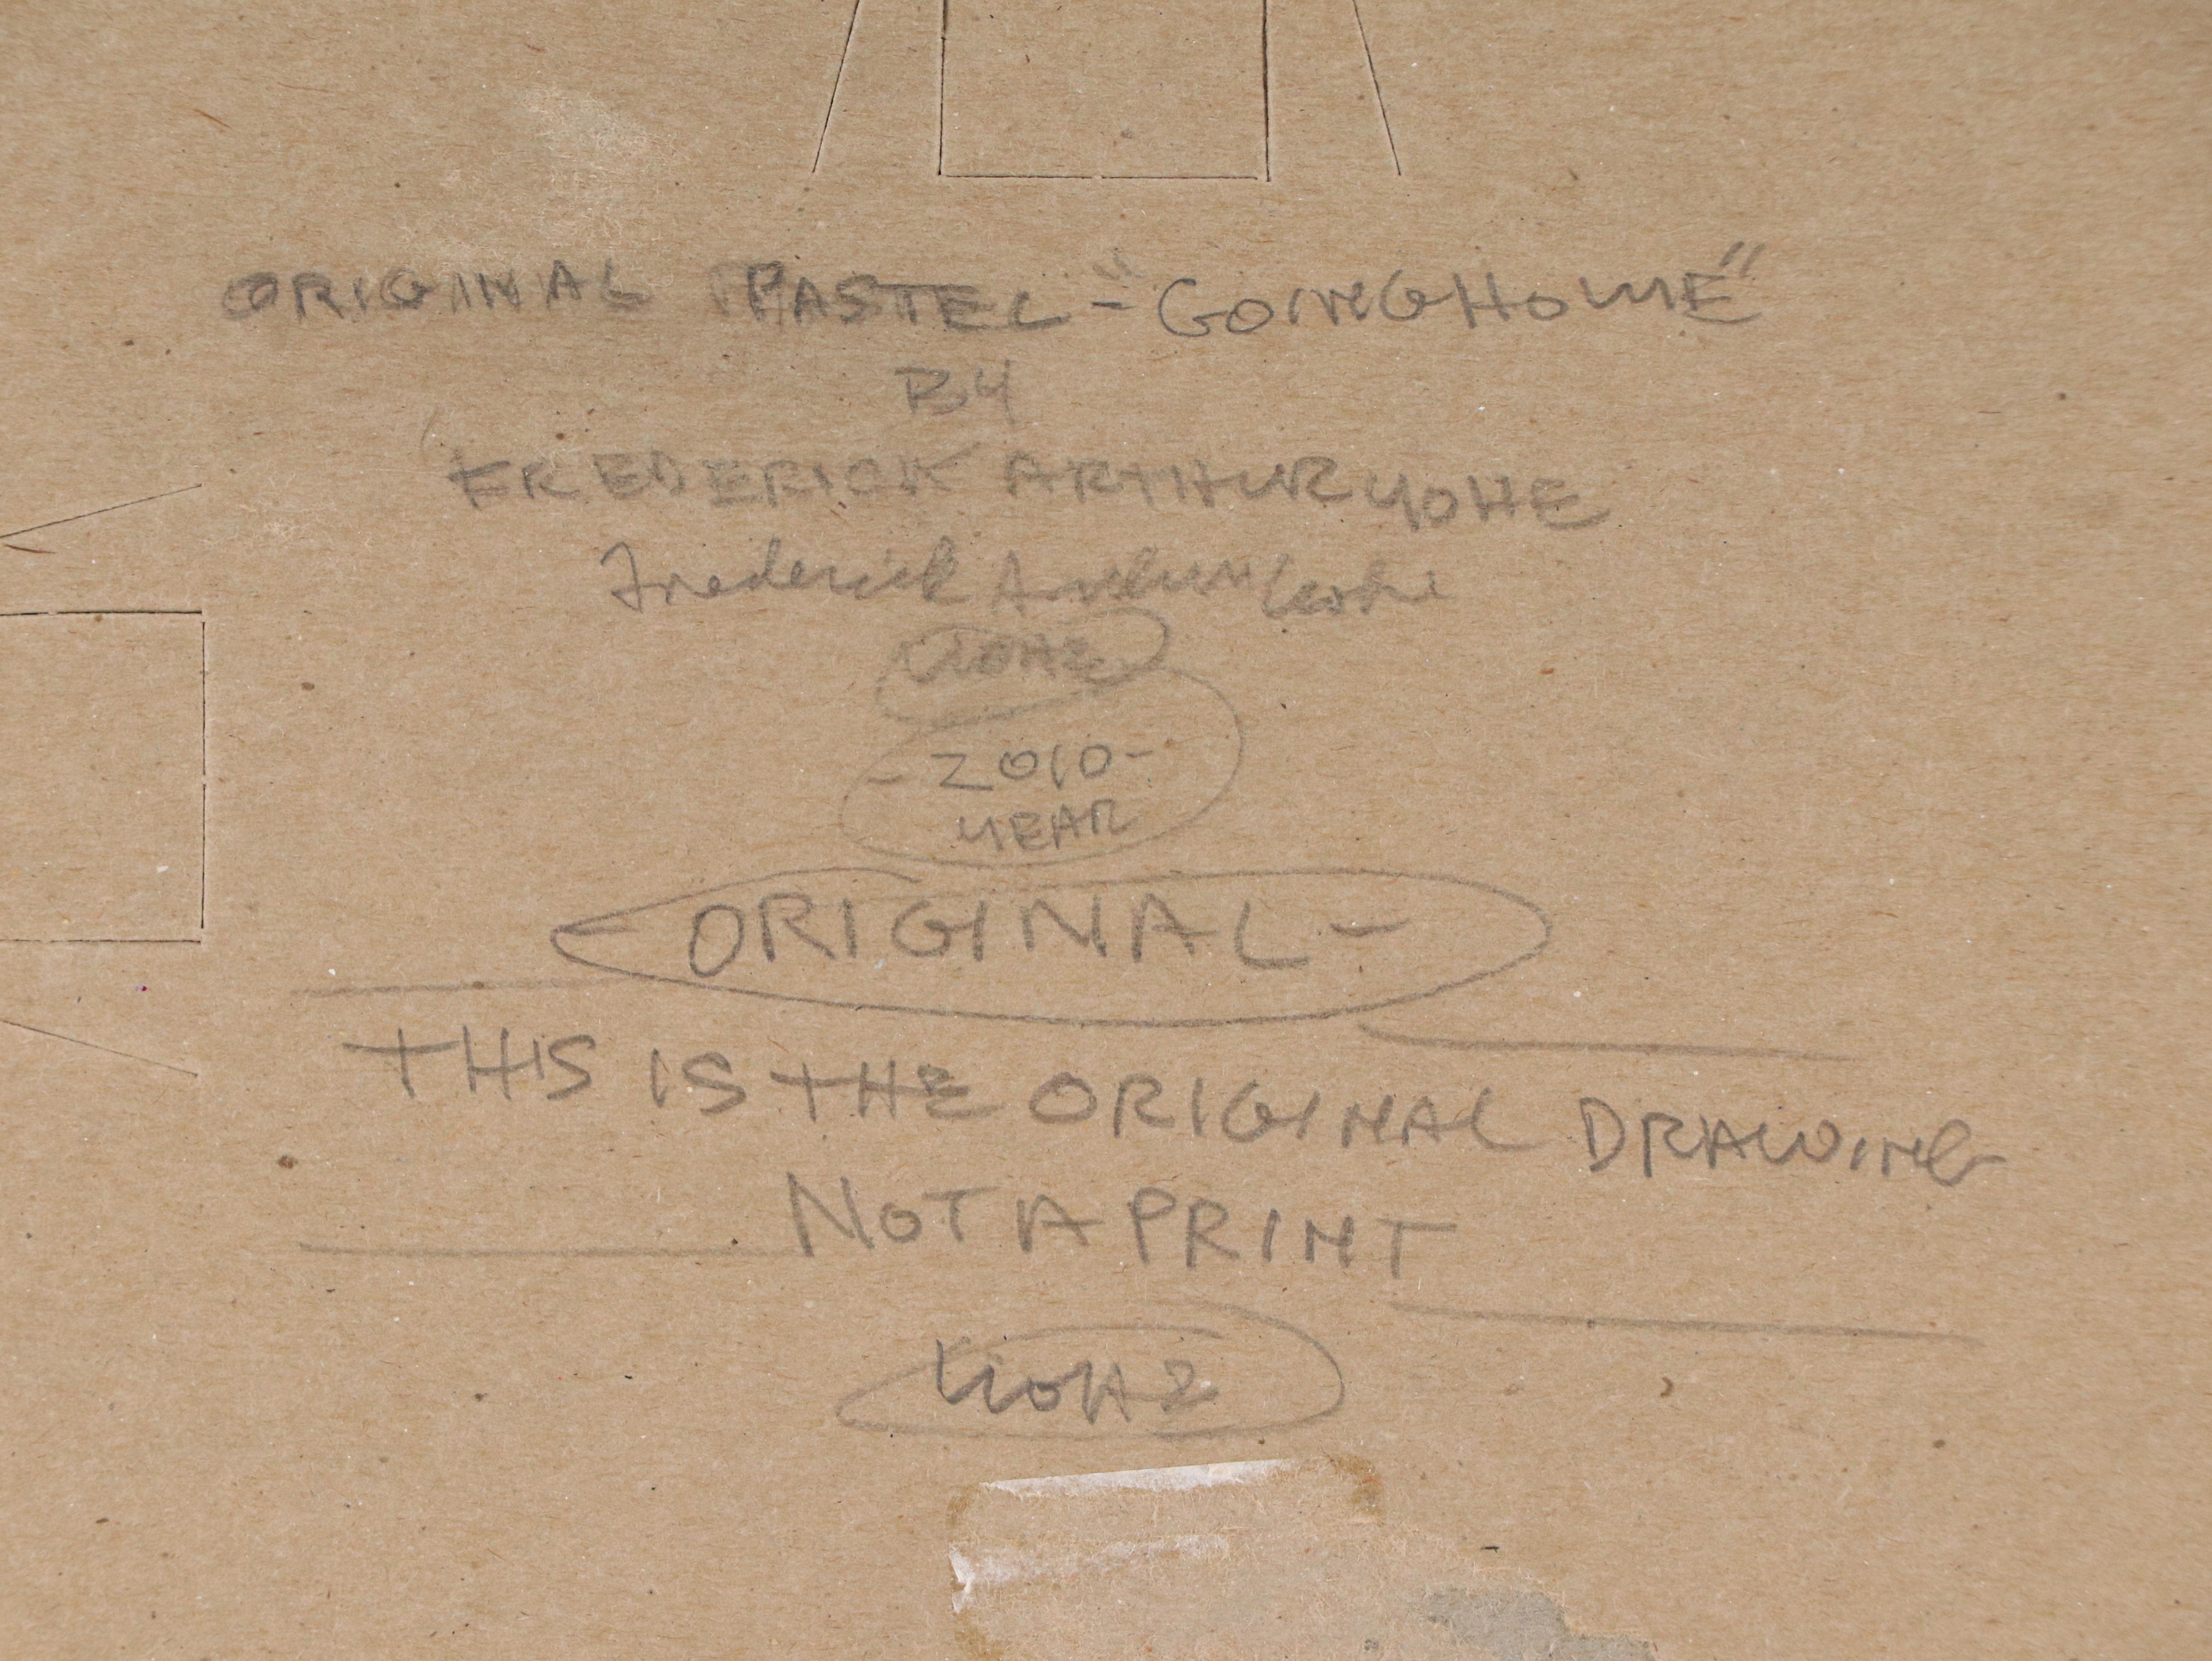 ORIGINAL PASTEL - "GOING HOME"
BY
FREDERICK ARTHUR YOHE
Frederick Arthur Yohe
YOHE
- 2010 -
YEAR
- ORIGINAL -
THIS IS THE ORIGINAL DRAWING
NOT A PRINT
YOHE